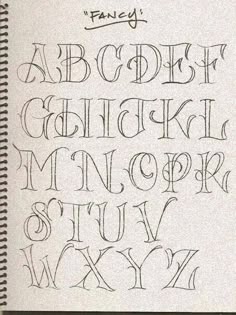 "FANCY"
ABCDEF
GHIJKL
MNOPR
STUV
WXYZ